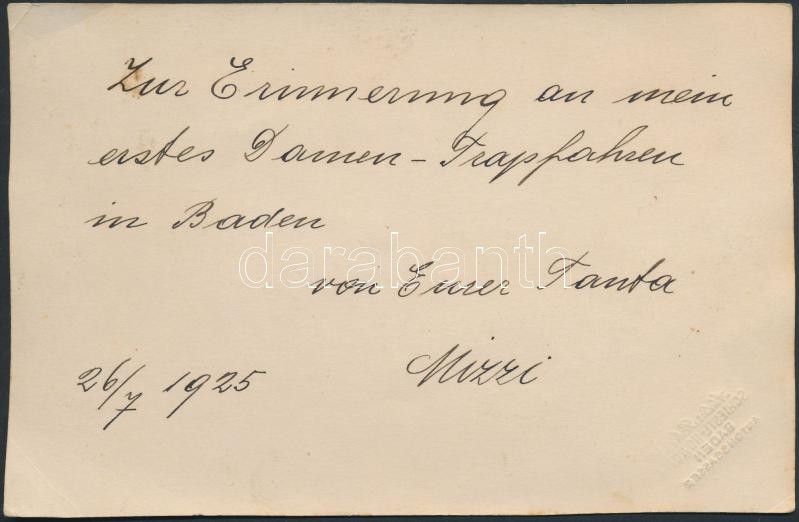 Zur Erinnerung an mein
erstes Damen-Trapfahren
in Baden
darabanth
von Eurer Tanta
Mizzi
26/7 1925
BADEN